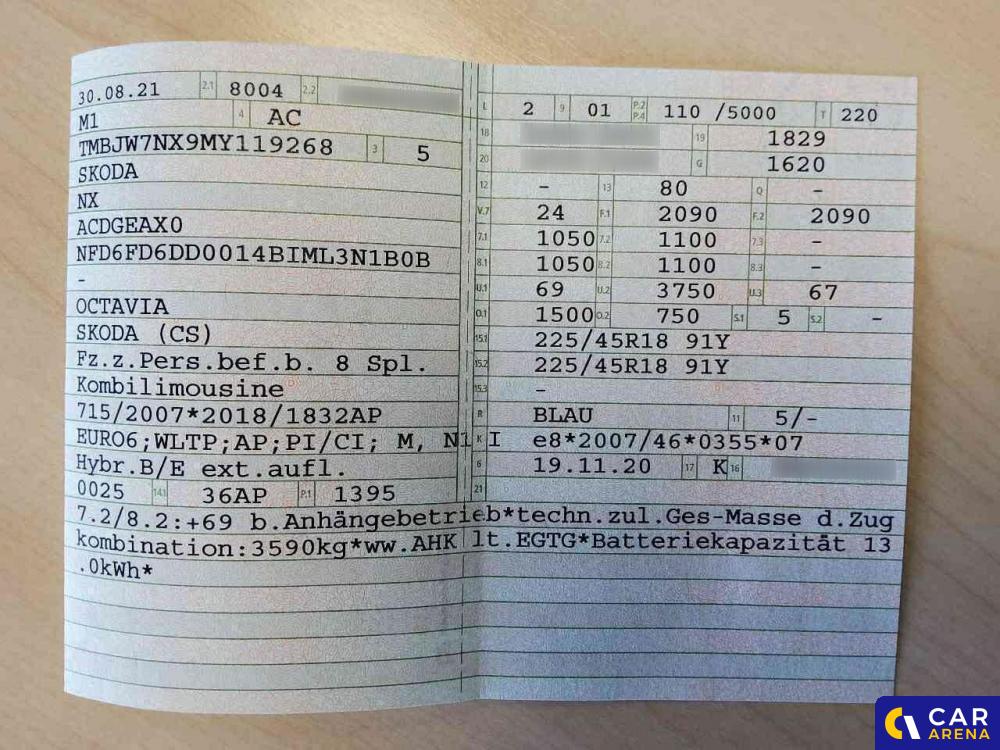 30.08.21 2.1 8004 2.2
M1 4 AC
TMBJW7NX9MY119268 3 5
SKODA
NX
ACDGEAX0
NFD6FD6DD0014BIML3N1B0B
-
OCTAVIA
SKODA (CS)
Fz.z.Pers.bef.b. 8 Spl.
Kombilimousine
715/2007*2018/1832AP
EURO6;WLTP;AP;PI/CI; M, N1 I
Hybr.B/E ext.aufl.
0025 14.1 36AP P.1 1395
L 2 9 01 P.2 P.4 110 /5000 T 220
18 19 1829
20 G 1620
12 - 13 80 Q -
V.7 24 F.1 2090 F.2 2090
7.1 1050 7.2 1100 7.3 -
8.1 1050 8.2 1100 8.3 -
U.1 69 U.2 3750 U.3 67
O.1 1500 O.2 750 S.1 5 S.2 -
15.1 225/45R18 91Y
15.2 225/45R18 91Y
15.3 -
R BLAU 11 5/-
K e8*2007/46*0355*07
6 19.11.20 17 K 16
21
7.2/8.2:+69 b.Anhängebetrieb*techn.zul.Ges-Masse d.Zug
kombination:3590kg*ww.AHK lt.EGTG*Batteriekapazität 13
.0kWh*
CAR
ARENA